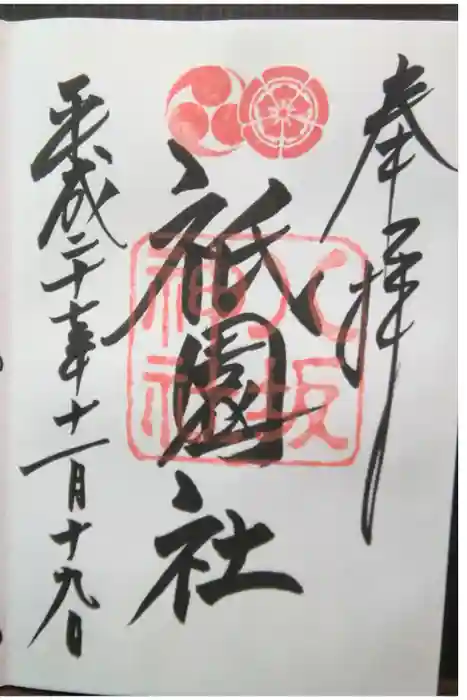 奉拝
八坂
神社
祇園社
平成二十七年十一月十九日